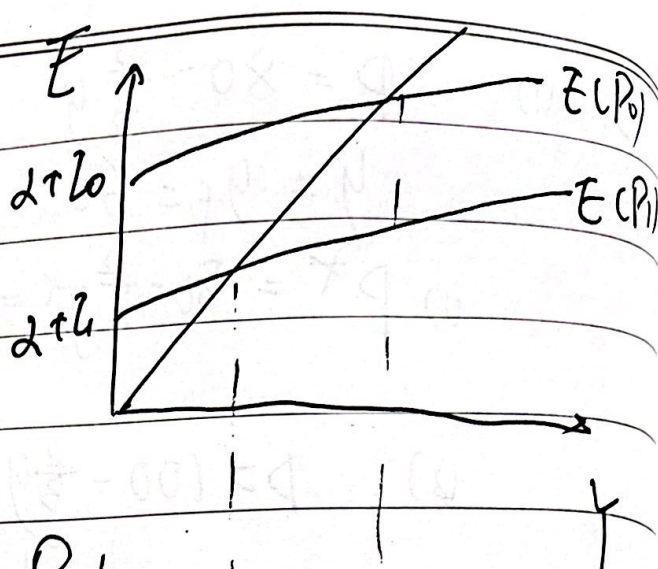 E
E(P₀)
α+I₀
E(P₁)
α+I₁
Y
P